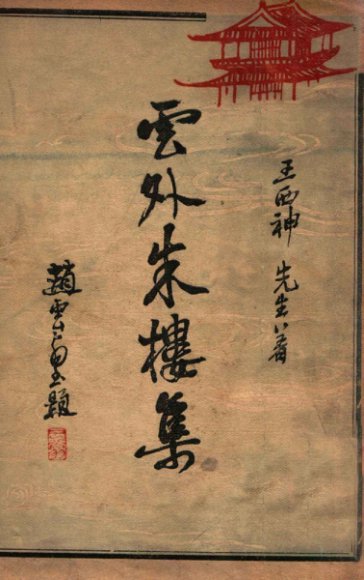 王西神先生著
雲外朱樓集
趙雲壑題